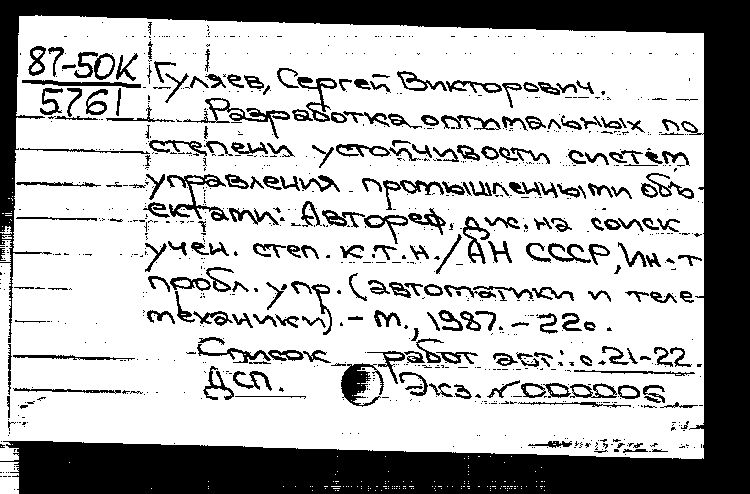 87-50К
5761
Гуляев, Сергей Викторович.
Разработка оптимальных по
степени устойчивости систем
управления промышленными объ-
ектами: Автореф. дис. на соиск
учен. степ. к.т.н./АН СССР, Ин-т
пробл. упр. (автоматики и теле-
механики). - М., 1987. - 22с.
Список работ авт.: с.21-22.
ДСП. Экз. N000005.